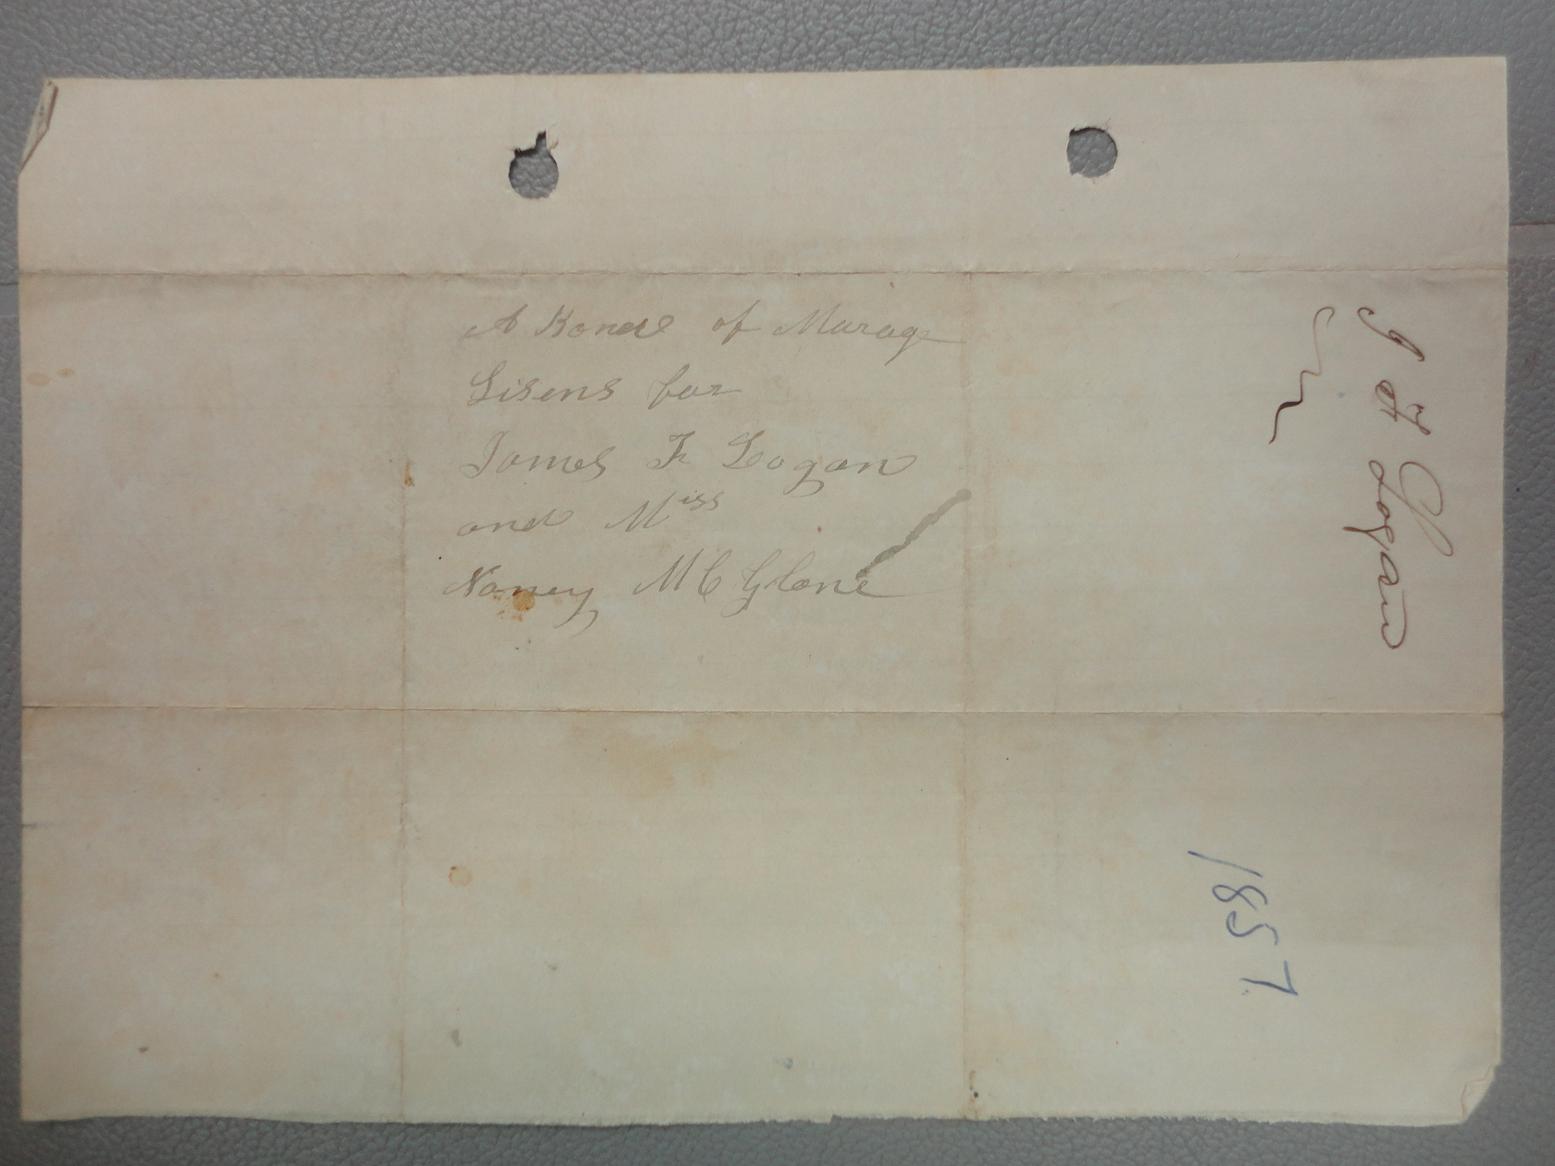 A Bond of Marage
Lisens for
James F Logan
and Miss
Nancy MC Glone
J F Logan
1857